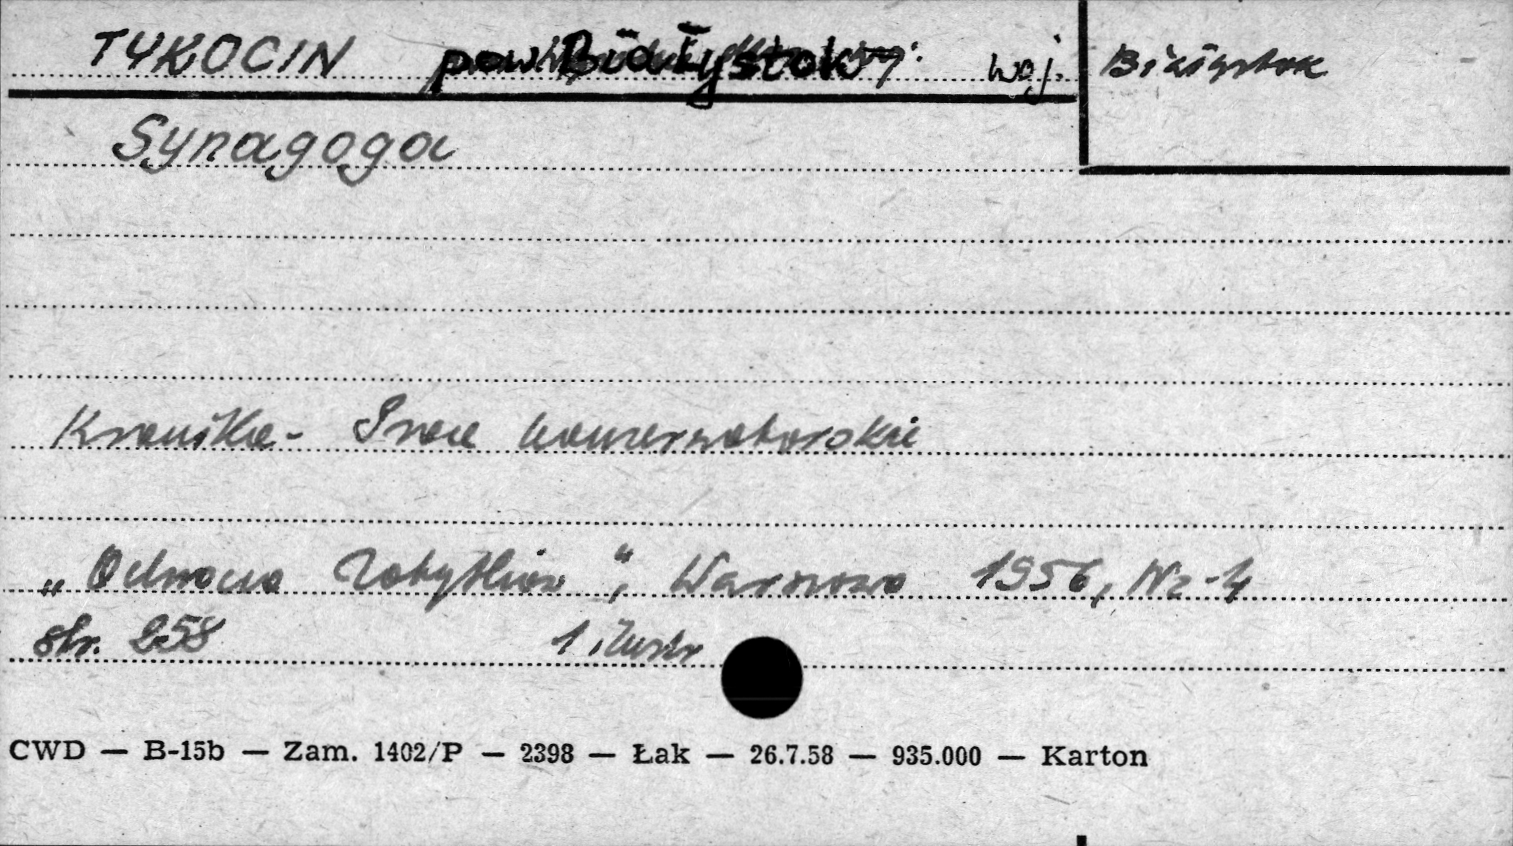 TYKOCIN pow. Białystok woj. Białystok
Synagoga
Kronika - Prace konserwatorskie
„Ochrona Zabytków", Warszawa 1956, Nr-4
str. 258 1 ilustr
CWD — B-15b — Zam. 1402/P — 2398 — Łak — 26.7.58 — 935.000 — Karton